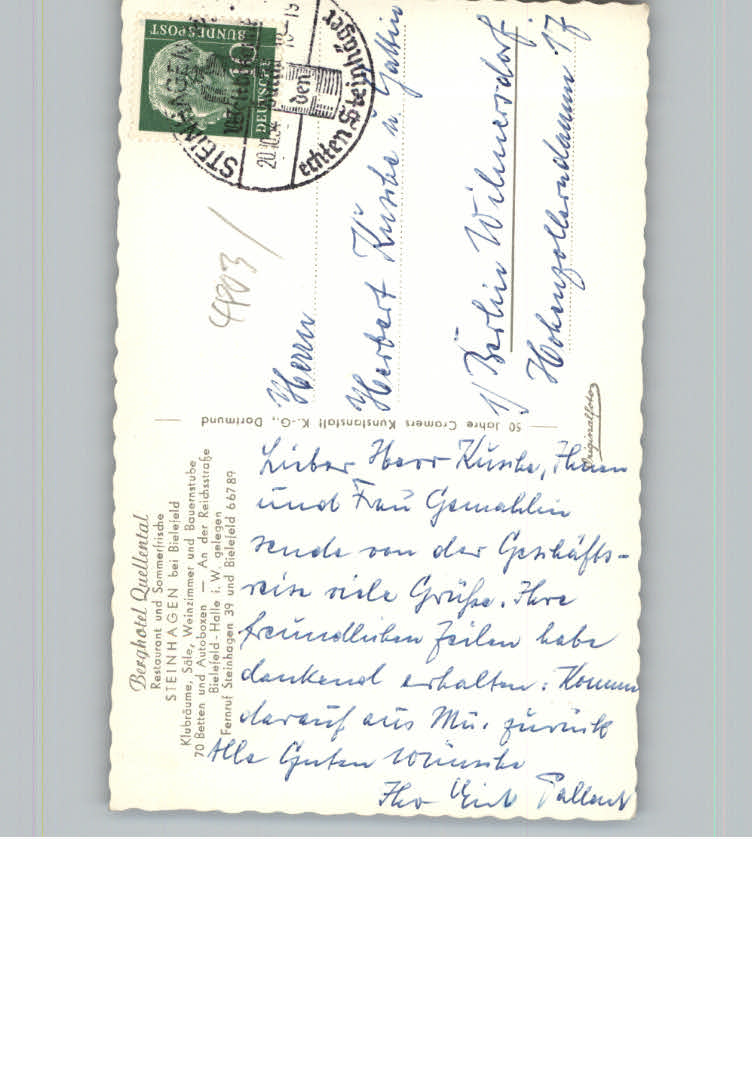 Berghotel Quellental
Restaurant und Sommerfrische
STEINHAGEN bei Bielefeld
Klubräume, Säle, Weinzimmer und Bauernstube
70 Betten und Autoboxen — An der Reichsstraße
Bielefeld-Halle i. W. gelegen
Fernruf Steinhagen 39 und Bielefeld 66789
Lieber Herr Kuschke, Ihnen
und Frau Gemahlin
sende von der Geschäfts-
reise viele Grüße. Ihre
freundlichen Zeilen habe
dankend erhalten: Komme
darauf aus Mü. zurück
Alle Guten Wünsche
Ihr
50 Jahre Cramers Kunstanstalt K.-G., Dortmund
Originalfoto
DEUTSCHE
BUNDESPOST
STEINHAGEN
20.10.54
-19
den
echten Steinhäger
4803/
Herrn
Herbert Kuschke u Gattin
1/ Berlin Wilmersdorf
Hohenzollerndamm 17